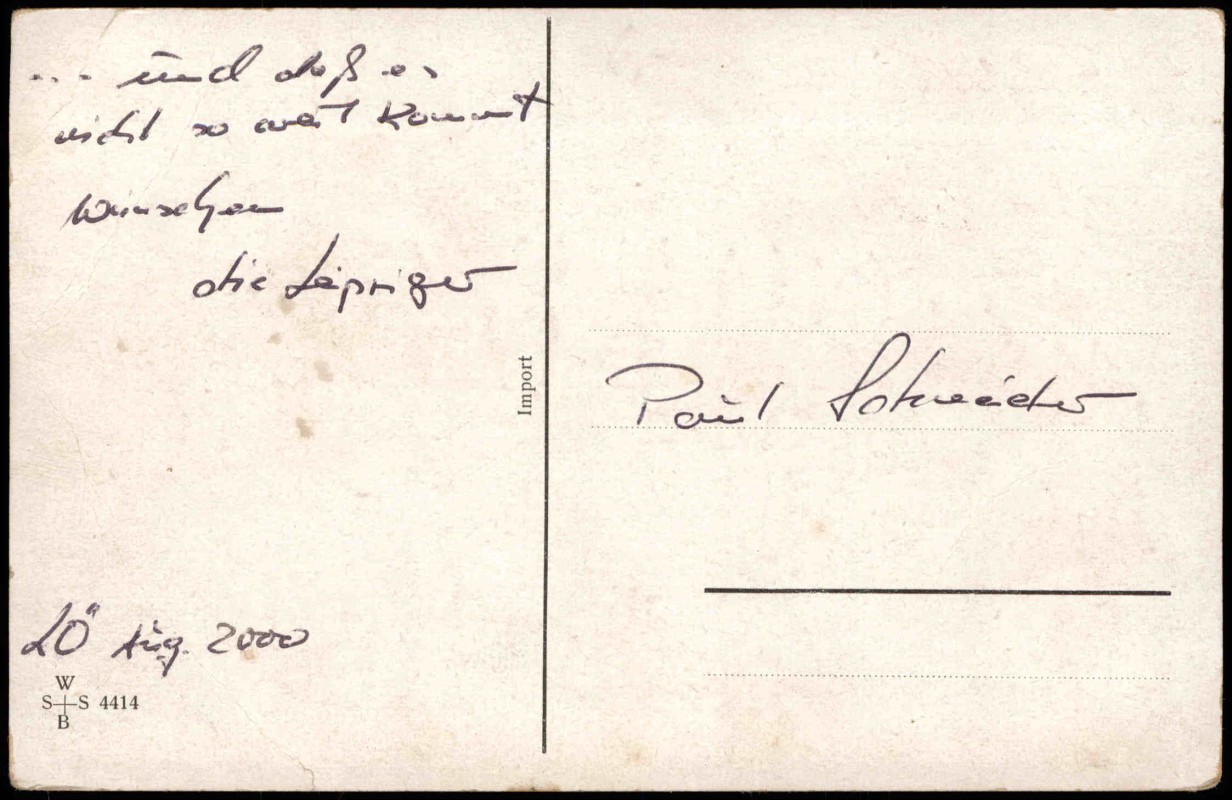 ... und daß es
nicht so weit kommt
wünschen
die Leipziger
Import
Paul Schneider
LÖ Aug. 2000
W
S S 4414
B